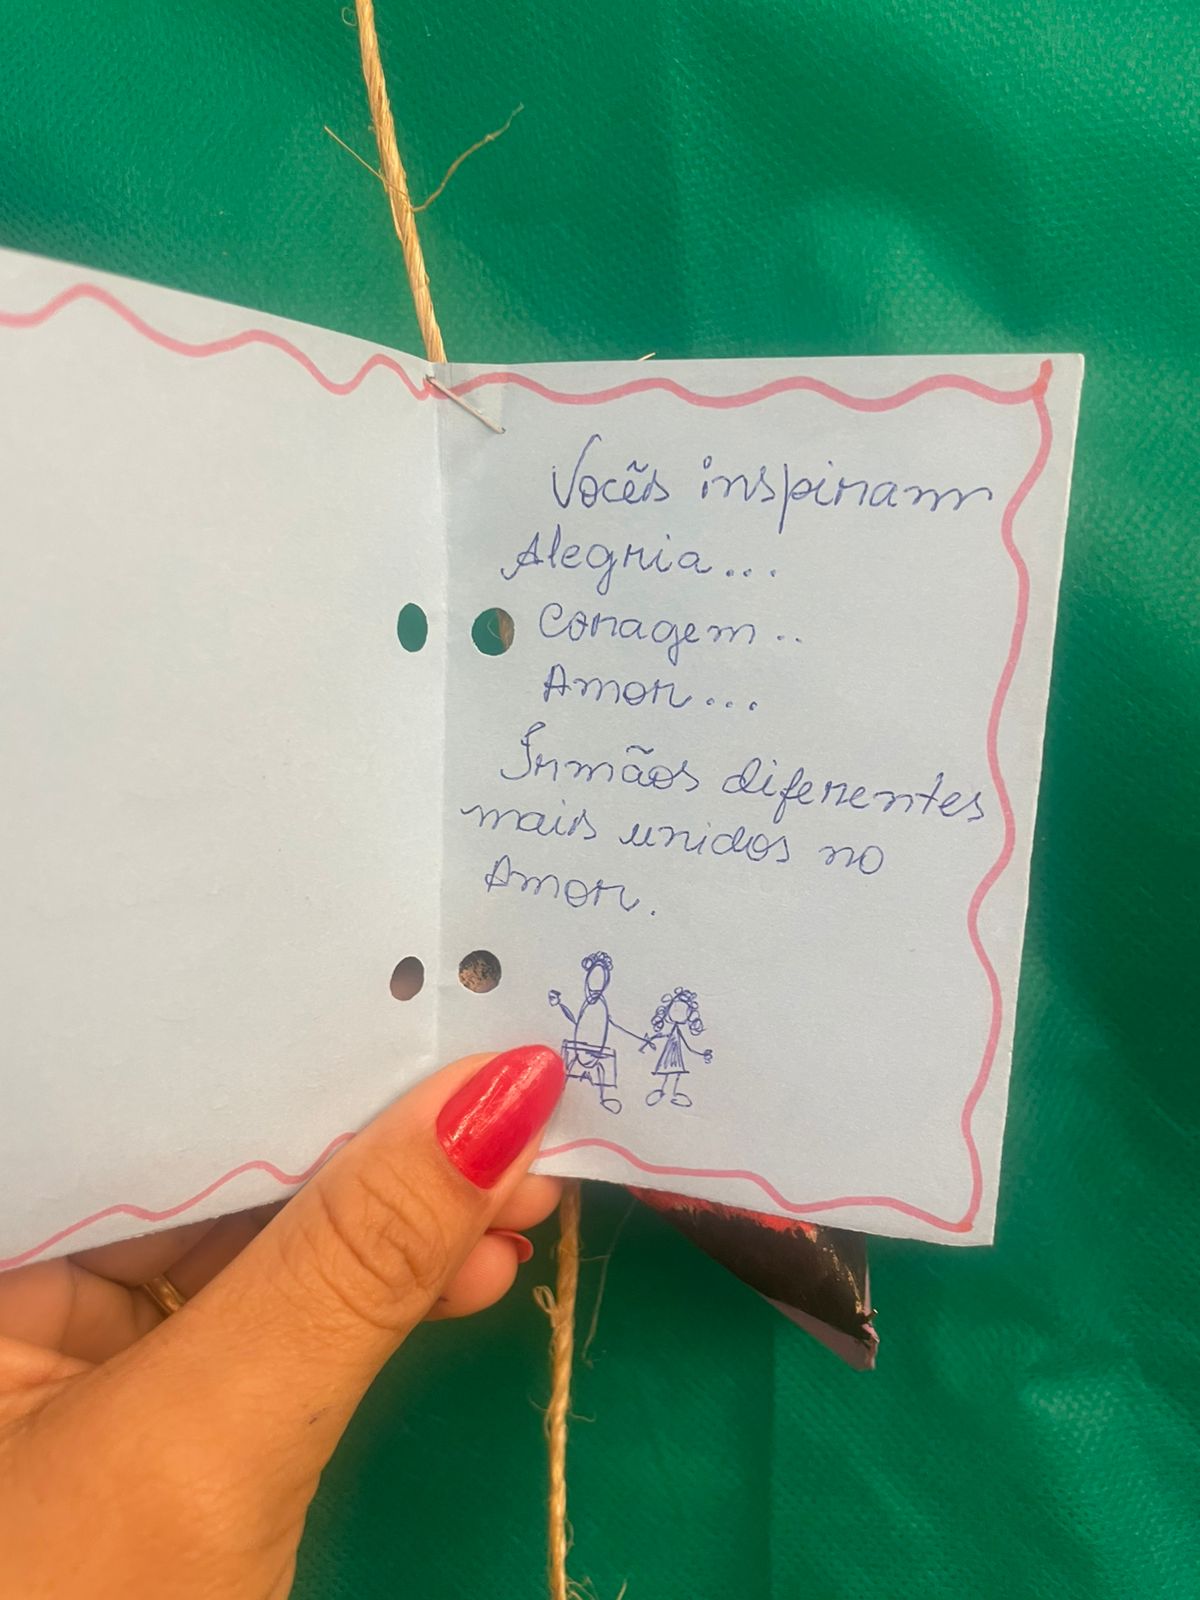 Vocês inspiram
Alegria...
Coragem..
Amor...
Irmãos diferentes
mais unidos no
Amor.